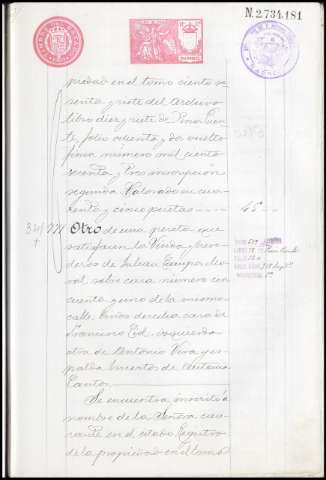 N. 2.734.181
piedad en el tomo ciento se
senta y siete del Archivo
libro diez y siete de Pinos Puente
folio ochenta y dos vuelto
finca número mil ciento
treinta y tres inscripcion
segunda. Valorado en cua
renta y cinco pesetas 45
Otro de una peseta que
satisfacen la Viuda y here
deros de
sobre casa número cin
cuenta y uno de la misma
calle. Linda derecha casa de
Francisco Cid, izquierda
otra de Antonio Vera y es
palda huertos de Antonio
Cantos.
Se encuentra inscrito á
nombre de la Señora cau
sante en el citado Registro
de la propiedad en el tomo